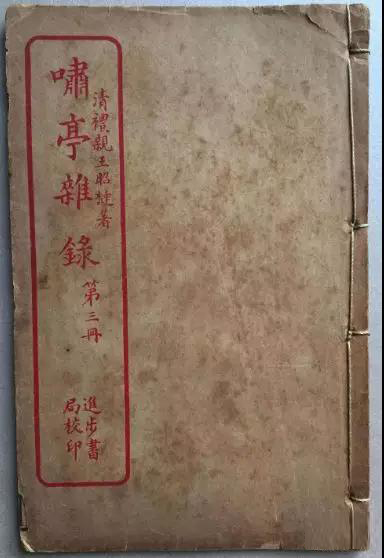 清禮親王昭槤著
嘯亭雜錄
第三冊
進步書
局校印